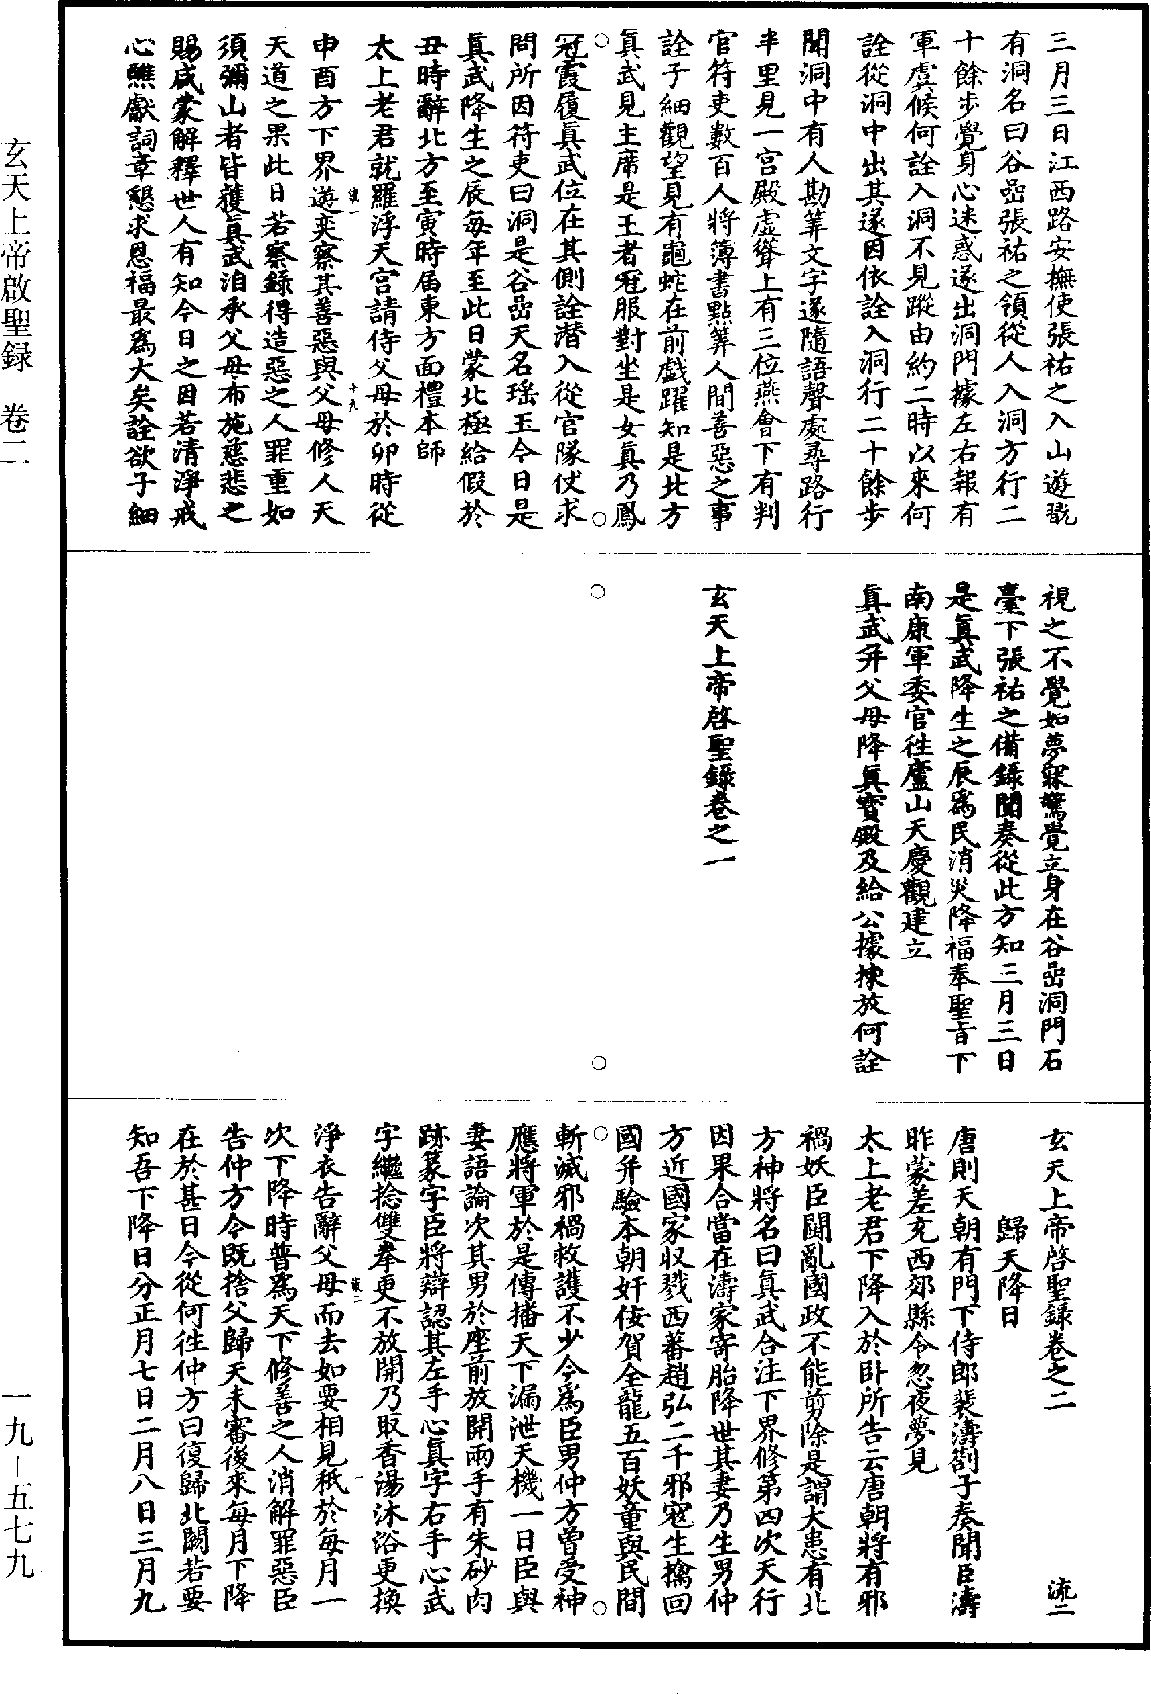 三月三日江西路安撫使張祐之入山遊翫
有洞名曰谷嵒張祐之領從人入洞方行二
十餘步覺身心迷惑遂出洞門據左右報有
軍虞候何詮入洞不見蹤由約二時以來何
詮從洞中出其遂因依詮入洞行二十餘步
聞洞中有人勘筭文字遂隨語聲處尋路行
半里見一宮殿虛聳上有三位燕會下有判
官符吏數百人將簿書點筭人間善惡之事
詮子細觀望見有龜蛇在前戲躍知是北方
真武見主席是王者冠服對坐是女真乃鳳
冠霞履真武位在其側詮潛入從官隊仗求
問所因符吏曰洞是谷嵒天名瑤玉今日是
真武降生之辰每年至此日蒙北極給假於
丑時辭北方至寅時届東方面禮本師
太上老君就羅浮天宮請侍父母於卯時從
申酉方下界遊奕察其善惡與父母修人天
天道之果此日若察錄得造惡之人罪重如
須彌山者皆獲真武洎承父母布施慈悲之
賜咸蒙解釋世人有知今日之因若清淨戒
心醮獻詞章懇求恩福最爲大矣詮欲子細
視之不覺如夢寐驚覺立身在谷嵒洞門石
臺下張祐之備錄聞奏從此方知三月三日
是真武降生之辰爲民消災降福奉聖旨下
南康軍委官徃廬山天慶觀建立
真武并父母降真寶殿及給公據揀放何詮
玄天上帝啓聖錄卷之一
玄天上帝啓聖錄卷之二
流二
歸天降日
唐則天朝有門下侍郎裴濤劄子奏聞臣濤
昨蒙差充西郊縣令忽夜夢見
太上老君下降入於卧所告云唐朝將有邪
禍妖臣鬪亂國政不能剪除是謂大患有北
方神將名曰真武合注下界修第四次天行
因果合當在濤家寄胎降世其妻乃生男仲
方近國家収戮西蕃趙弘二千邪寇生擒回
國并驗本朝奸佞賀全龍五百妖童與民間
斬滅邪禍救護不少今爲臣男仲方曾受神
應將軍於是傳播天下漏泄天機一日臣與
妻語論次其男於座前放開兩手有朱砂肉
跡篆字臣將辯認其左手心真字右手心武
字繼捻雙拳更不放開乃取香湯沐浴更換
淨衣告辭父母而去如要相見秖於每月一
次下降時普爲天下修善之人消解罪惡臣
告仲方今既捨父歸天未審後來每月下降
在於甚日今從何徃仲方曰復歸北闕若要
知吾下降日分正月七日二月八日三月九
玄天上帝啟聖録　卷二
一九—五七九